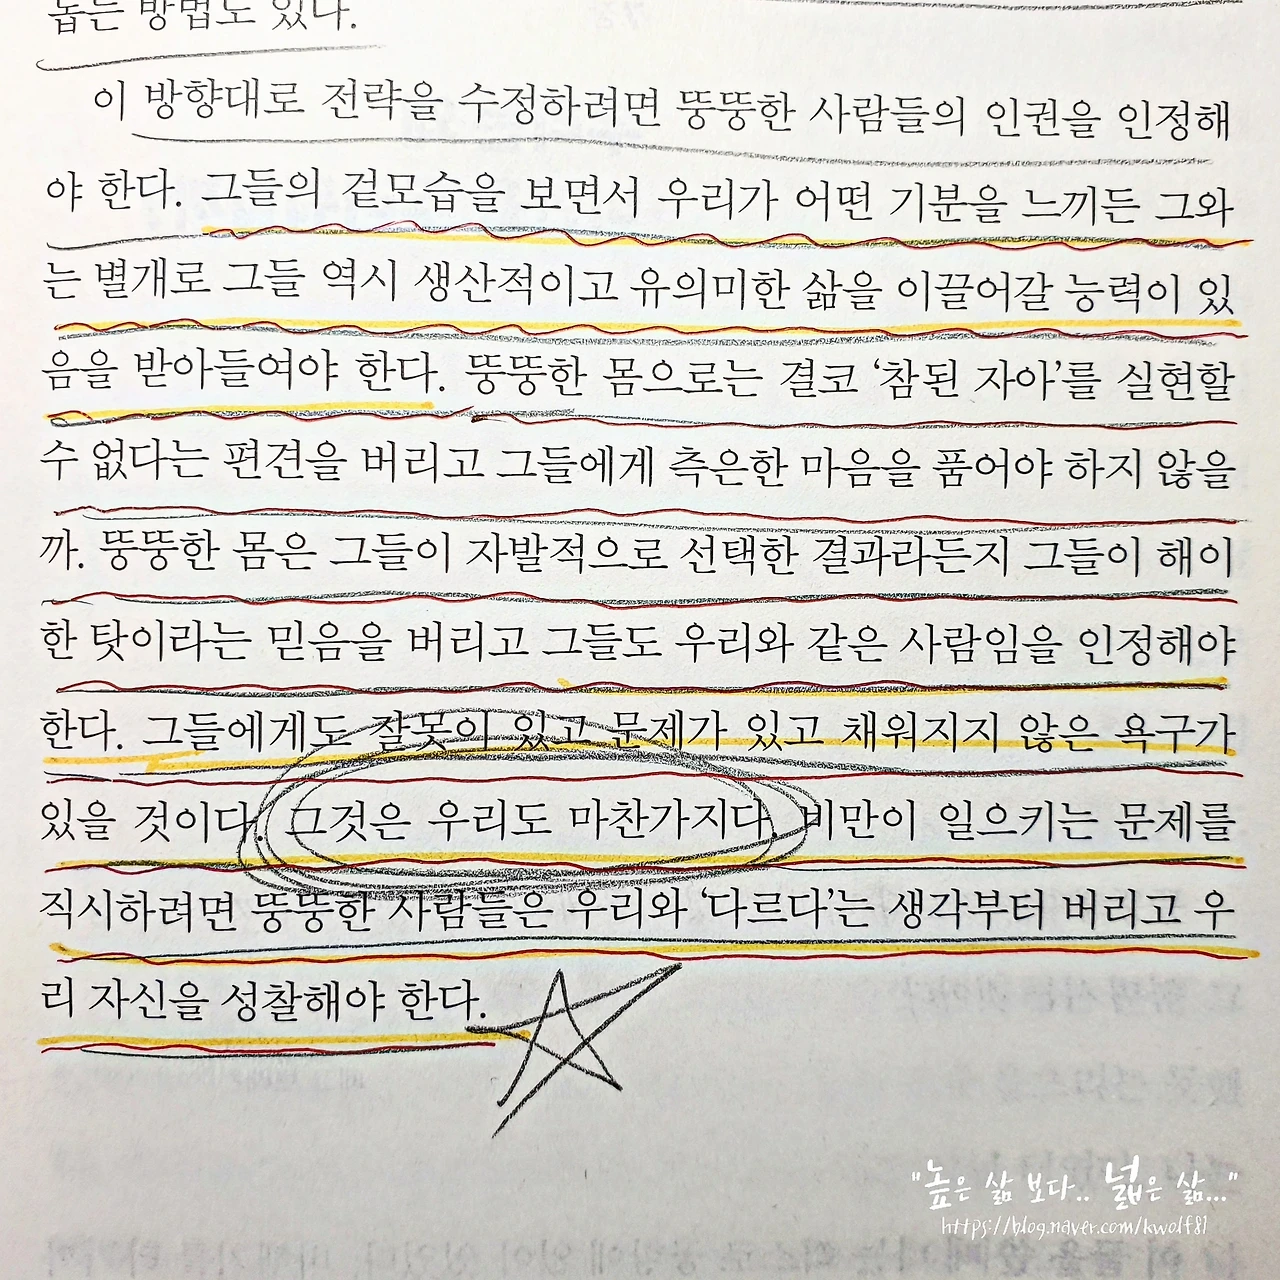 돕는 방법도 있다.
이 방향대로 전략을 수정하려면 뚱뚱한 사람들의 인권을 인정해
야 한다. 그들의 겉모습을 보면서 우리가 어떤 기분을 느끼든 그와
는 별개로 그들 역시 생산적이고 유의미한 삶을 이끌어갈 능력이 있
음을 받아들여야 한다. 뚱뚱한 몸으로는 결코 ‘참된 자아’를 실현할
수 없다는 편견을 버리고 그들에게 측은한 마음을 품어야 하지 않을
까. 뚱뚱한 몸은 그들이 자발적으로 선택한 결과라든지 그들이 해이
한 탓이라는 믿음을 버리고 그들도 우리와 같은 사람임을 인정해야
한다. 그들에게도 잘못이 있고 문제가 있고 채워지지 않은 욕구가
있을 것이다. 그것은 우리도 마찬가지다. 비만이 일으키는 문제를
직시하려면 뚱뚱한 사람들은 우리와 ‘다르다’는 생각부터 버리고 우
리 자신을 성찰해야 한다.
"높은 삶 보다.. 넓은 삶..."
https://blog.naver.com/kwolf81